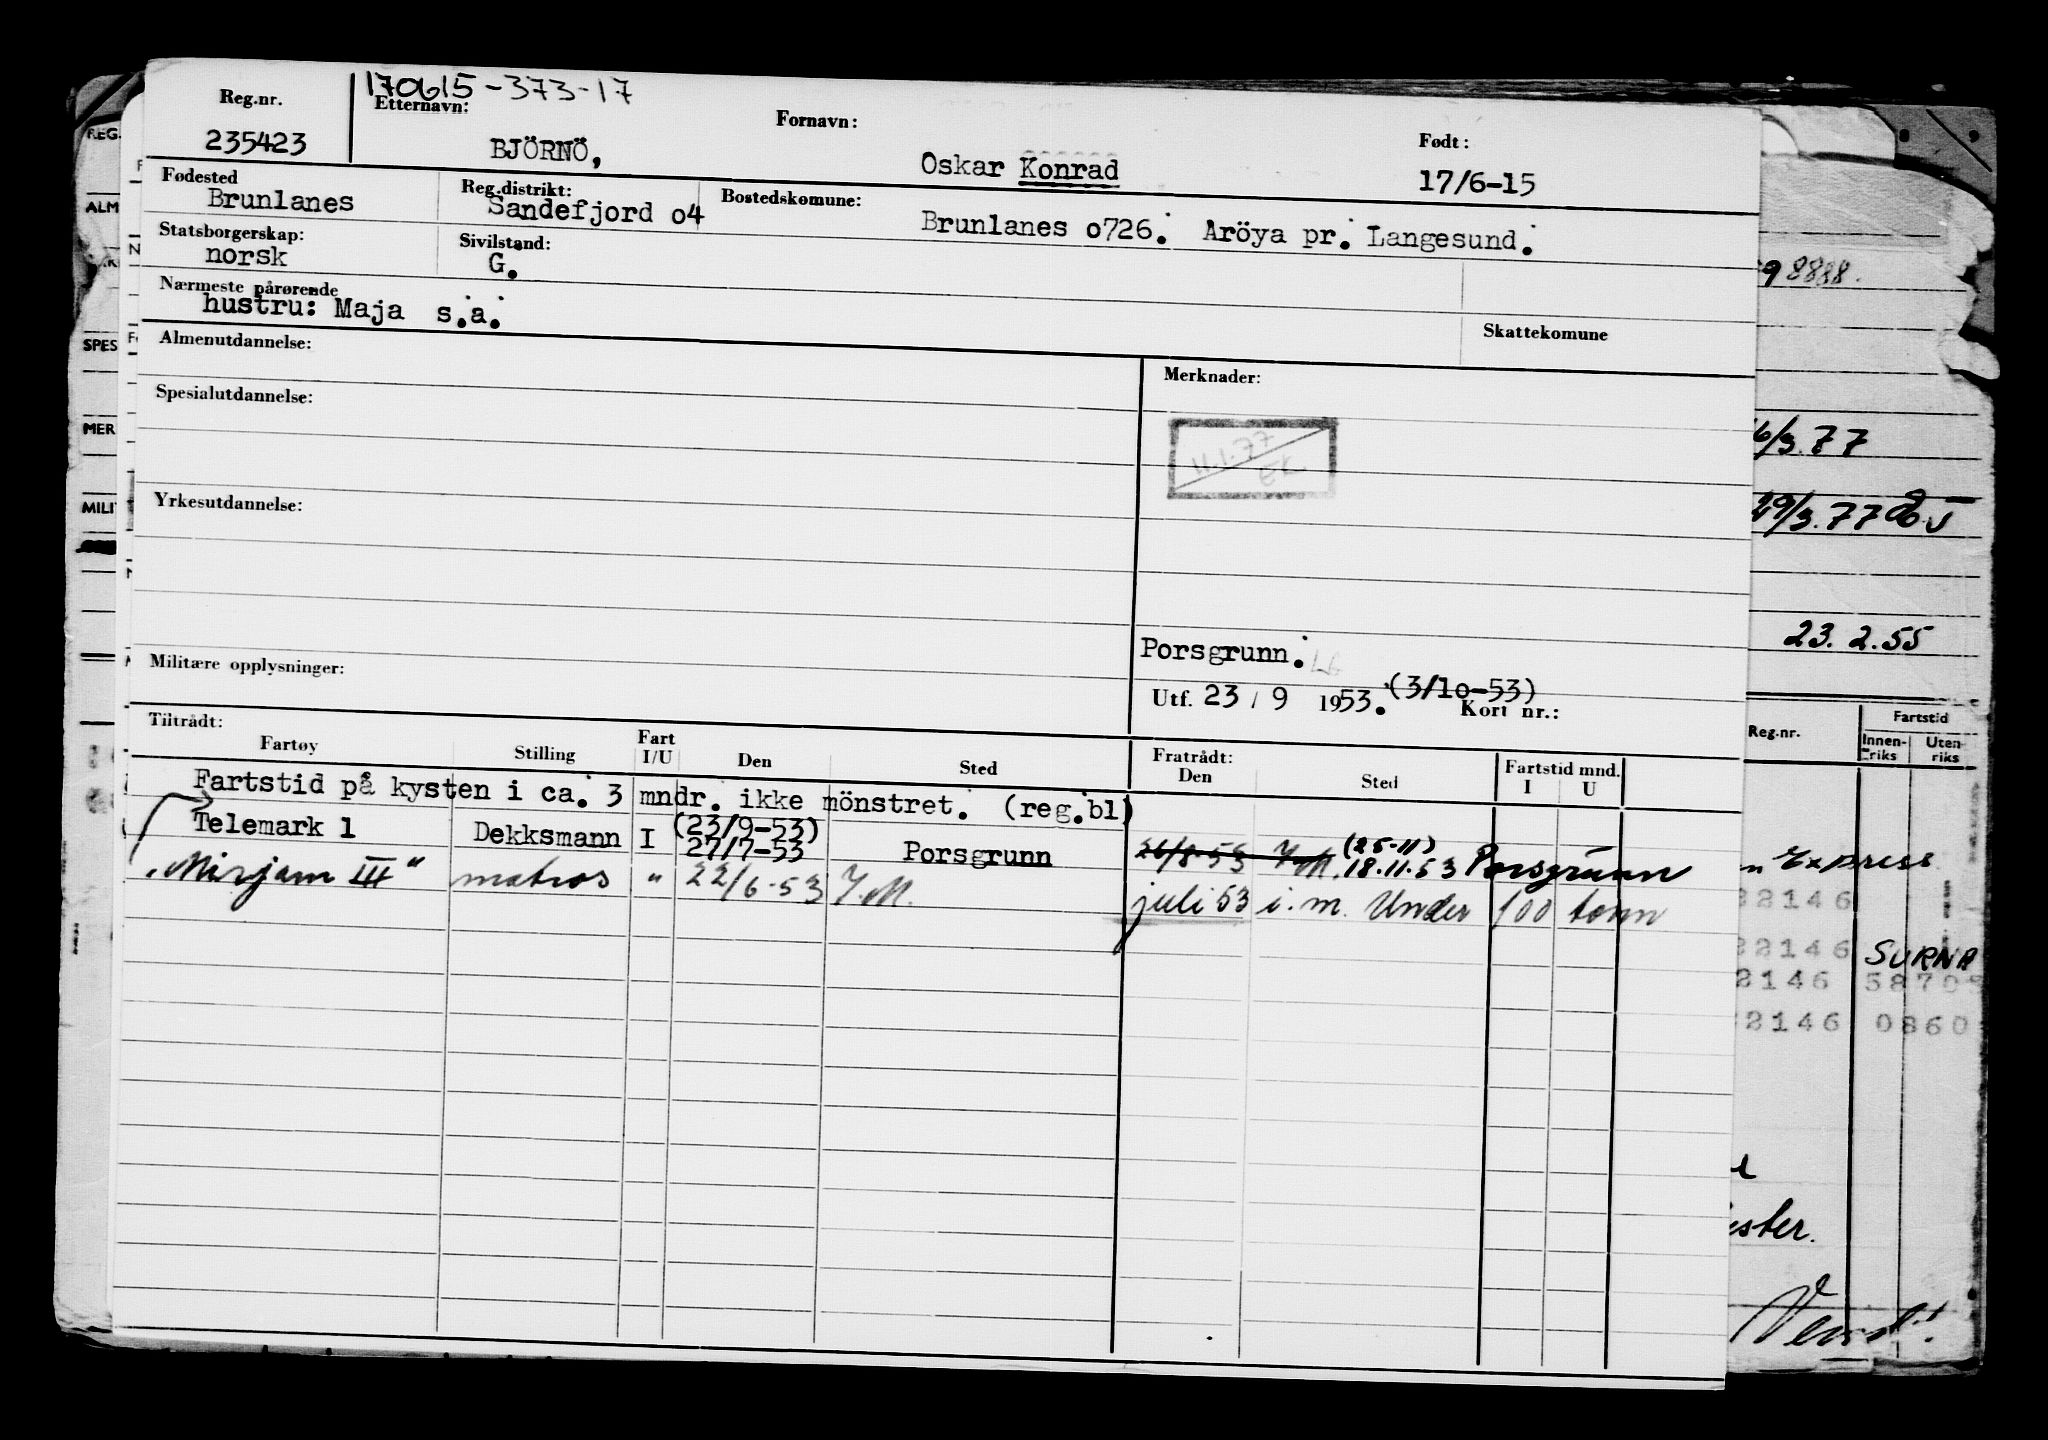 170615-373-17
Reg.nr. Etternavn: Fornavn: Født:
235423 BJÖRNÖ, Oskar Konrad 17/6-15
Fødested Reg.distrikt: Bostedskomune:
Brunlanes Sandefjord o4 Brunlanes o726. Aröya pr. Langesund.
Statsborgerskap: Sivilstand:
norsk G.
Nærmeste pårørende
hustru: Maja s.a.
Skattekomune
Almenutdannelse: Merknader:
Spesialutdannelse:
11.1.77
EK
Yrkesutdannelse:
Porsgrunn.
Militære opplysninger:
Utf. 23 / 9 1953. (3/1o-53) Kort nr.:
Tiltrådt: Fratrådt:
Fartøy Stilling Fart I/U Den Sted Den Sted Fartstid mnd. I U
Fartstid på kysten i ca. 3 mndr. ikke mönstret. (reg.bl)
Telemark 1 Dekksmann I (23/9-53) 27/7-53 Porsgrunn 26/8-53 I.M. (25-11) 18.11.53 Porsgrunn
"Mirjam III" matros " 22/6-53 I.M. juli 53 i.m. Under 100 tonn
REG.
ALM
SPES
MER
MILI
9 8888.
6/3.77
29/3.77
23.2.55
Reg.nr. Fartstid
Innen-riks Uten-riks
Express
22146
22146 SURNA
2146 5870
2146 0860